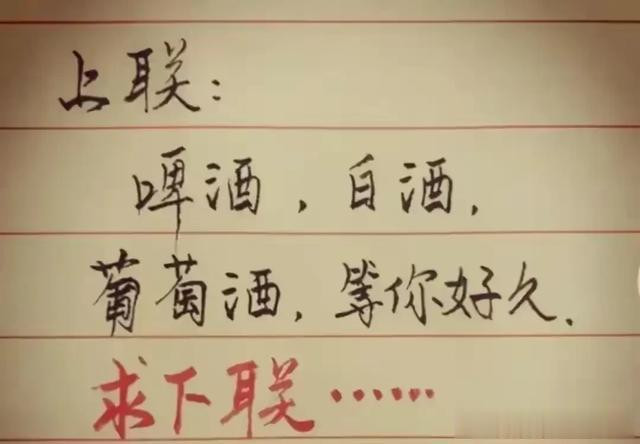 上联：
啤酒，白酒，
葡萄酒，等你好久.
求下联……